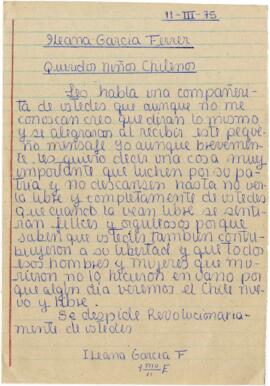 11-III-75
Ileana García Ferrer
Queridos niños Chilenos
Les habla una compañeri-
ta de ustedes que aunque no me
conoscan creo que diran lo mismo
y se alegraran al recibir este peque
ño mensaje yo aunque brevemen-
te les quiero decir una cosa muy
importante que luchen por su pa-
tria y no descansen hasta no ver-
la libre y completamente de ustedes
que cuando la vean libre se senti-
rian felices y orgullosos porque
saben que ustedes también contri-
buyeron a su libertad y que todos
esos hombres y mujeres que mu-
rieron no lo hicieron en vano por
que algún dia veremos el Chile nue-
vo y libre.
Se despide Revolucionaria-
mente de ustedes
Ileana García F